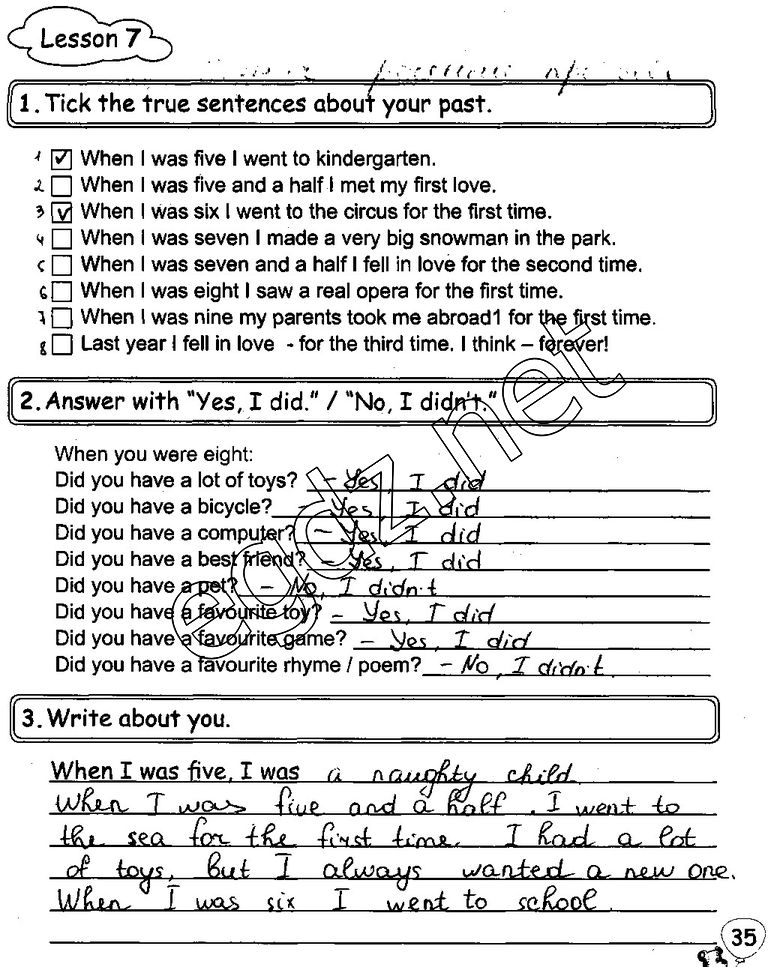 Lesson 7
1. Tick the true sentences about your past.
1 ✓ When I was five I went to kindergarten.
2 When I was five and a half I met my first love.
3 ✓ When I was six I went to the circus for the first time.
4 When I was seven I made a very big snowman in the park.
5 When I was seven and a half I fell in love for the second time.
6 When I was eight I saw a real opera for the first time.
7 When I was nine my parents took me abroad1 for the first time.
8 Last year I fell in love - for the third time. I think – forever!
2. Answer with “Yes, I did.” / “No, I didn't.”
When you were eight:
Did you have a lot of toys? – Yes, I did
Did you have a bicycle? – Yes, I did
Did you have a computer? – Yes, I did
Did you have a best friend? – Yes, I did
Did you have a pet? – No, I didn't
Did you have a favourite toy? – Yes, I did
Did you have a favourite game? – Yes, I did
Did you have a favourite rhyme / poem? – No, I didn't.
egdz.net
3. Write about you.
When I was five, I was a naughty child.
When I was five and a half. I went to
the sea for the first time. I had a lot
of toys, but I always wanted a new one.
When I was six I went to school.
35